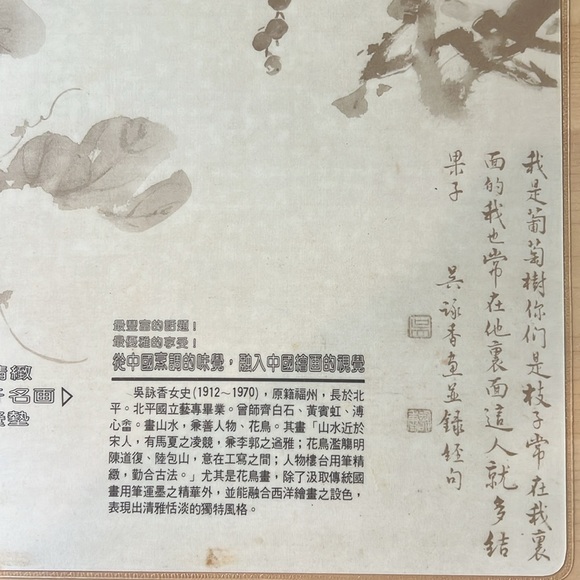 我是葡萄樹你们是枝子常在我裏
面的我也常在他裏面這人就多结
果子 吴詠香畫並錄经句
緻
名画
墊
最豐富的話題！
最優雅的享受！
從中國烹調的味覺，融入中國繪画的視覺
吳詠香女史(1912～1970)，原籍福州，長於北
平。北平國立藝專畢業。曾師齊白石、黃賓虹、溥
心畬。畫山水，兼善人物、花鳥。其畫「山水近於
宋人，有馬夏之凌競，兼李郭之遒雅；花鳥濫觴明
陳道復、陸包山，意在工寫之間；人物樓台用筆精
緻，勤合古法。」尤其是花鳥畫，除了汲取傳統國
畫用筆運墨之精華外，並能融合西洋繪畫之設色，
表現出清雅恬淡的獨特風格。